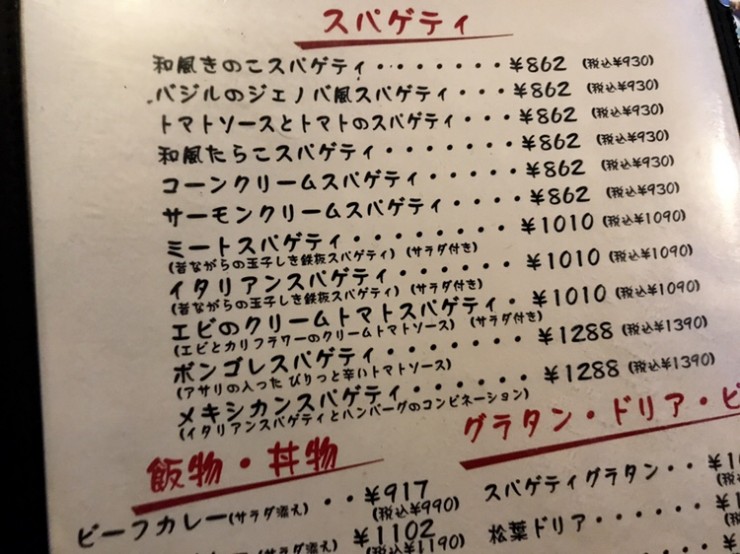 スパゲティ
和風きのこスパゲティ・・・・・・・¥862 (税込¥930)
バジルのジェノバ風スパゲティ・・・・¥862 (税込¥930)
トマトソースとトマトのスパゲティ・・・¥862 (税込¥930)
和風たらこスパゲティ・・・・・・・¥862 (税込¥930)
コーンクリームスパゲティ・・・・・¥862 (税込¥930)
サーモンクリームスパゲティ・・・・¥862 (税込¥930)
ミートスパゲティ・・・・・・・・¥1010 (税込¥1090)
(昔ながらの玉子しき鉄板スパゲティ) (サラダ付き)
イタリアンスパゲティ・・・・・・¥1010 (税込¥1090)
(昔ながらの玉子しき鉄板スパゲティ) (サラダ付き)
エビのクリームトマトスパゲティ・¥1010 (税込¥1090)
(エビとカリフラワーのクリームトマトソース) (サラダ付き)
ボンゴレスパゲティ・・・・・・・¥1288 (税込¥1390)
(アサリの入った ぴりっと辛いトマトソース)
メキシカンスパゲティ・・・・・・¥1288 (税込¥1390)
(イタリアンスパゲティとハンバーグのコンビネーション)
飯物・丼物
ビーフカレー(サラダ添え)・・¥917
(税込¥990)
(サラダ添え) ¥1102
(税込¥1190)
グラタン・ドリア・ピ
スパゲティグラタン・・¥1
松葉ドリア・・・・・・¥